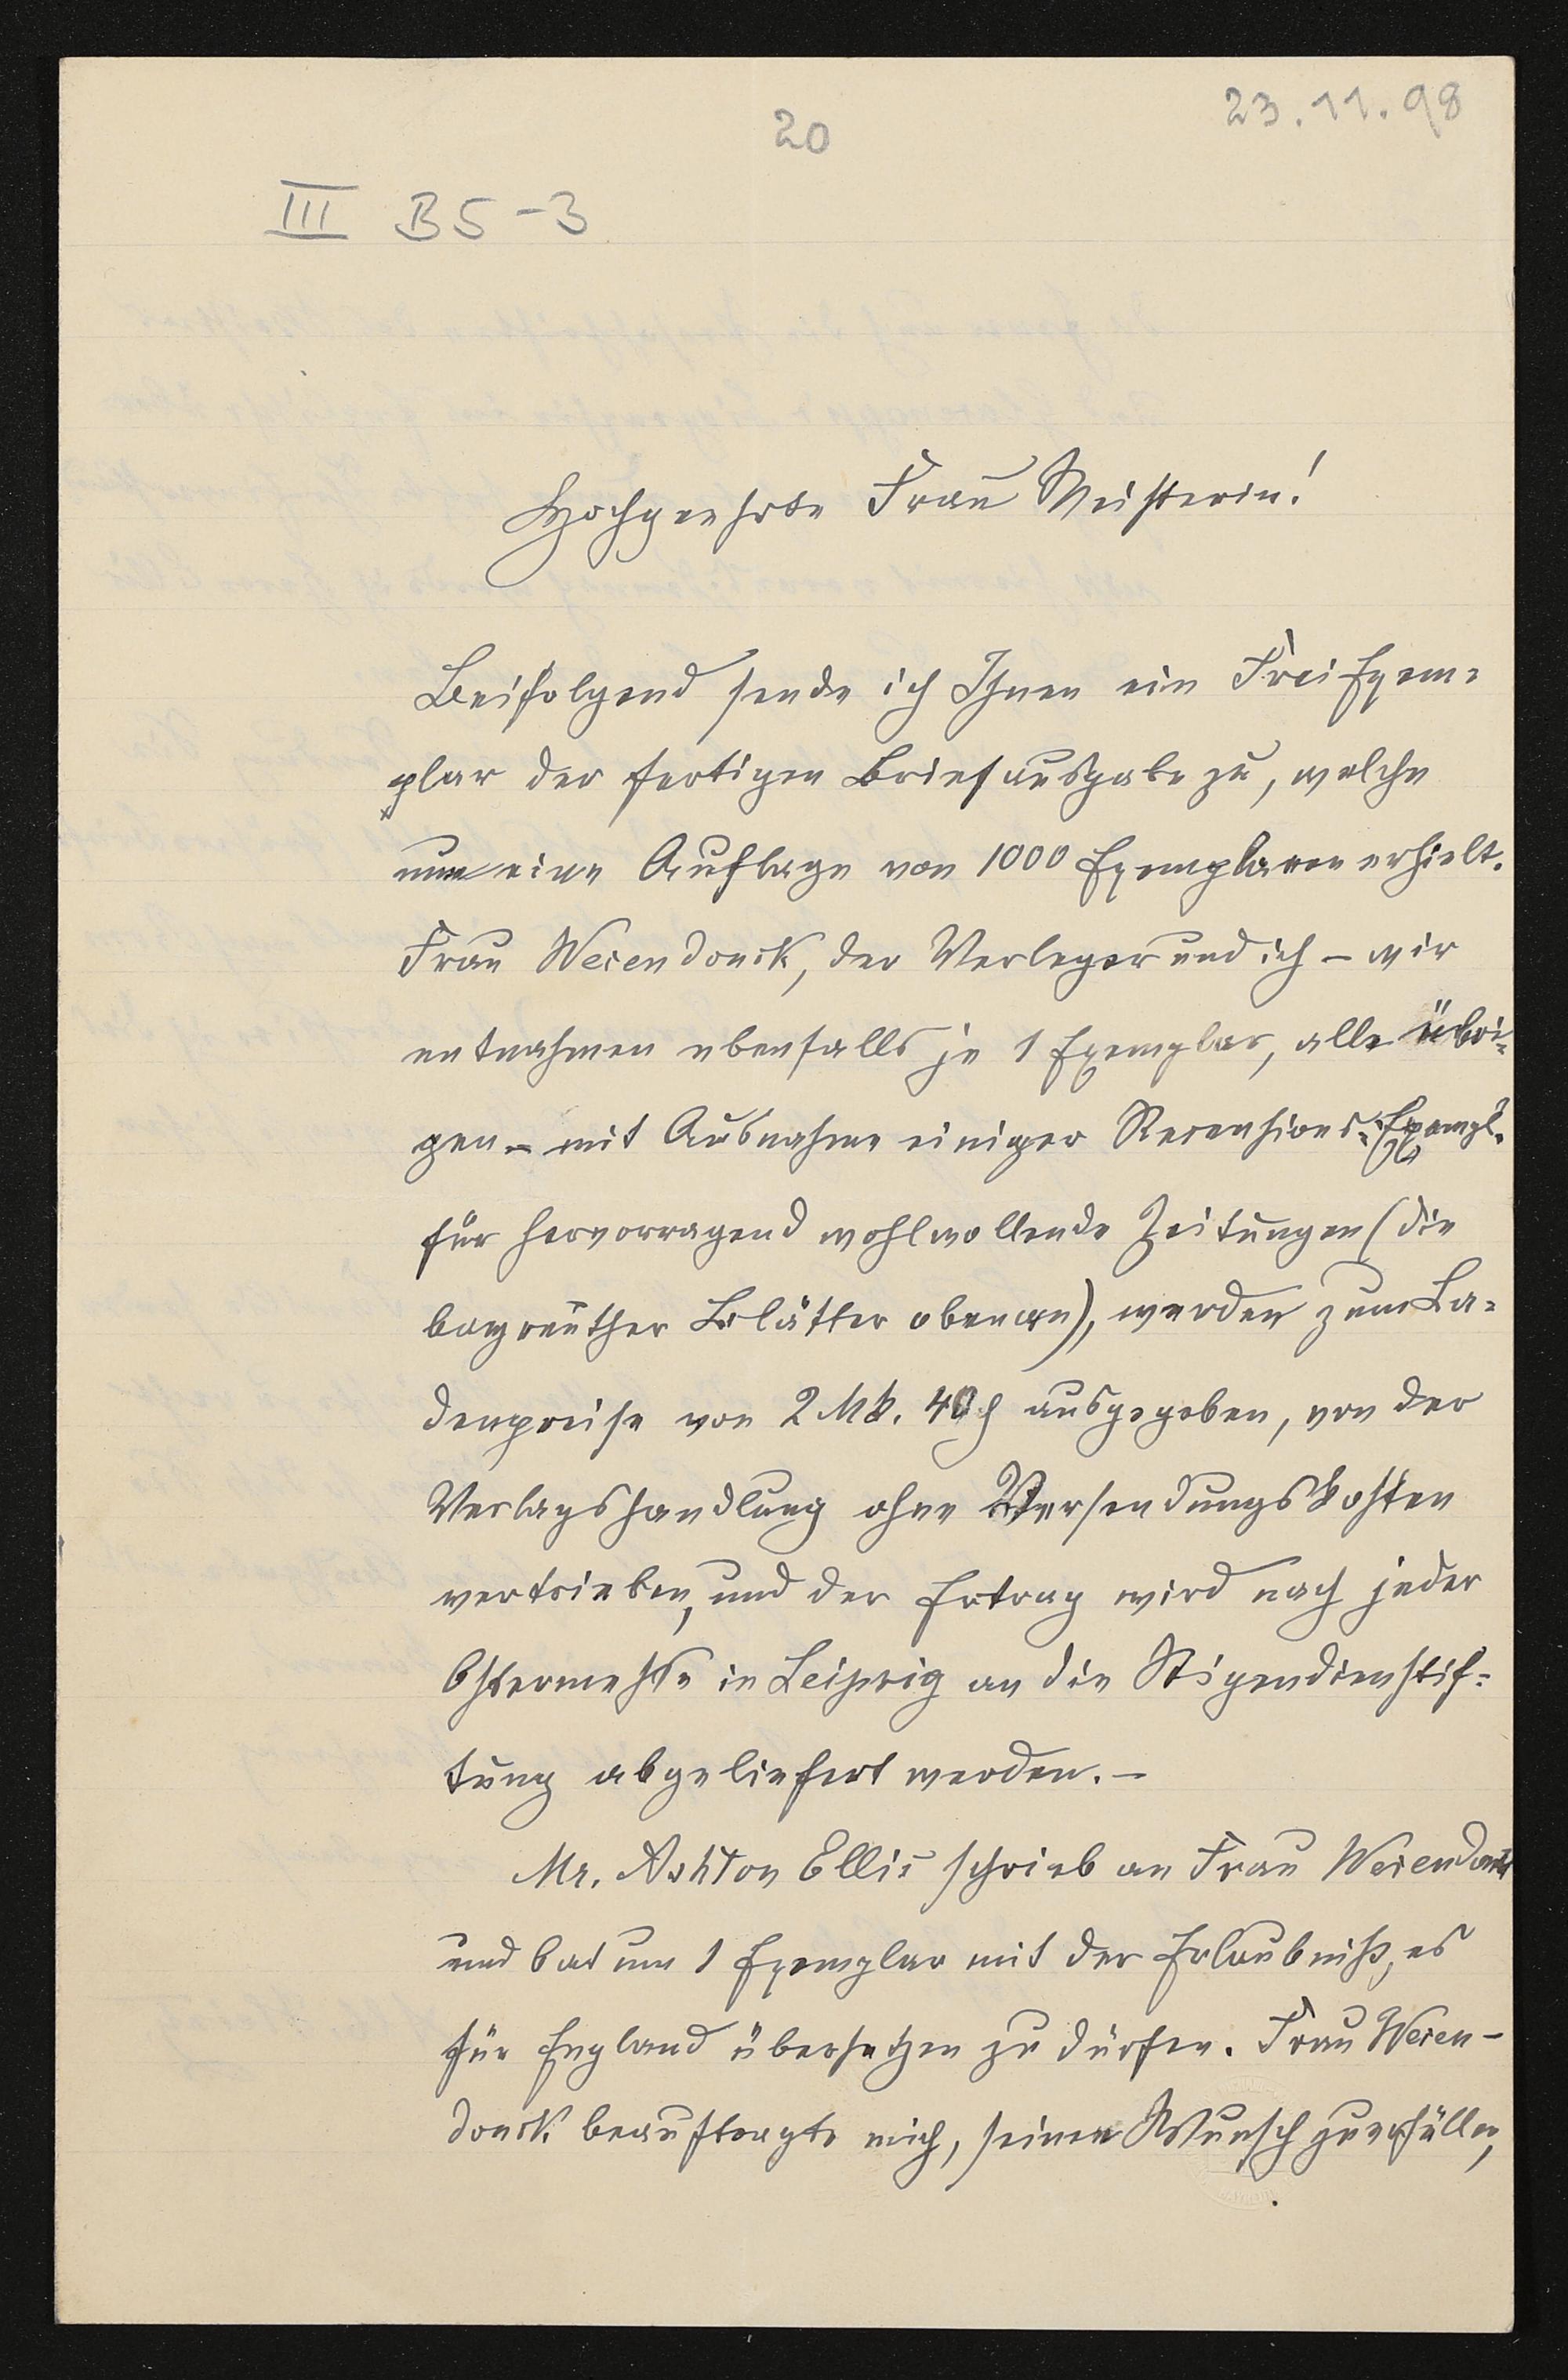 23.11.98
20
III B5-3
Hochgeehrte Frau Meisterin!
Beifolgend sende ich Ihnen ein Freiexem-
plar der fertigen Briefausgabe zu, welche
nun eine Auflage von 1000 Exemplaren erhielt.
Frau Wesendonck, der Verleger und ich – wir
entnahmen ebenfalls je 1 Exemplar, alle übri-
gen – mit Ausnahme einiger Recensions-Exempl.
für hervorragend wohlwollende Zeitungen (die
bayreuther Blätter obenan), werden zum La-
denpreise von 2 Mk. 40 ₰ ausgegeben, von der
Verlagshandlung ohne Versendungskosten
vertrieben, und der Ertrag wird nach jeder
Ostermesse in Leipzig an die Stipendienstif-
tung abgeliefert werden. –
Mr. Ashton Ellis schrieb an Frau Wesendonck
und bat um 1 Exemplar mit der Erlaubniß, es
für England übersetzen zu dürfen. Frau Wesen-
donck beauftragte mich, seinen Wunsch zu erfüllen,